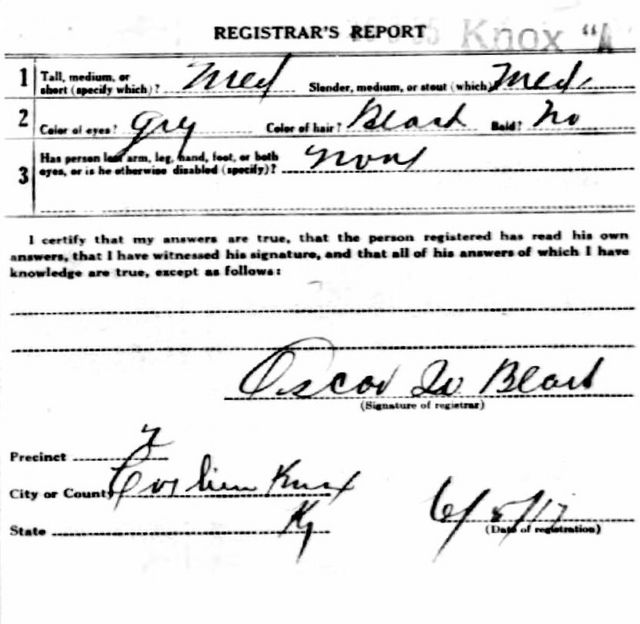 REGISTRAR'S REPORT Knox "A
1 Tall, medium, or short (specify which)? Med Slender, medium, or stout (which) Med
2 Color of eyes? Gry Color of hair? Black Bald? No
3 Has person lost arm, leg, hand, foot, or both eyes, or is he otherwise disabled (specify)? None
I certify that my answers are true, that the person registered has read his own
answers, that I have witnessed his signature, and that all of his answers of which I have
knowledge are true, except as follows:
Oscar W
(Signature of registrar)
Precinct
City or County Corbin Knox
State Ky 6/5/17
(Date of registration)